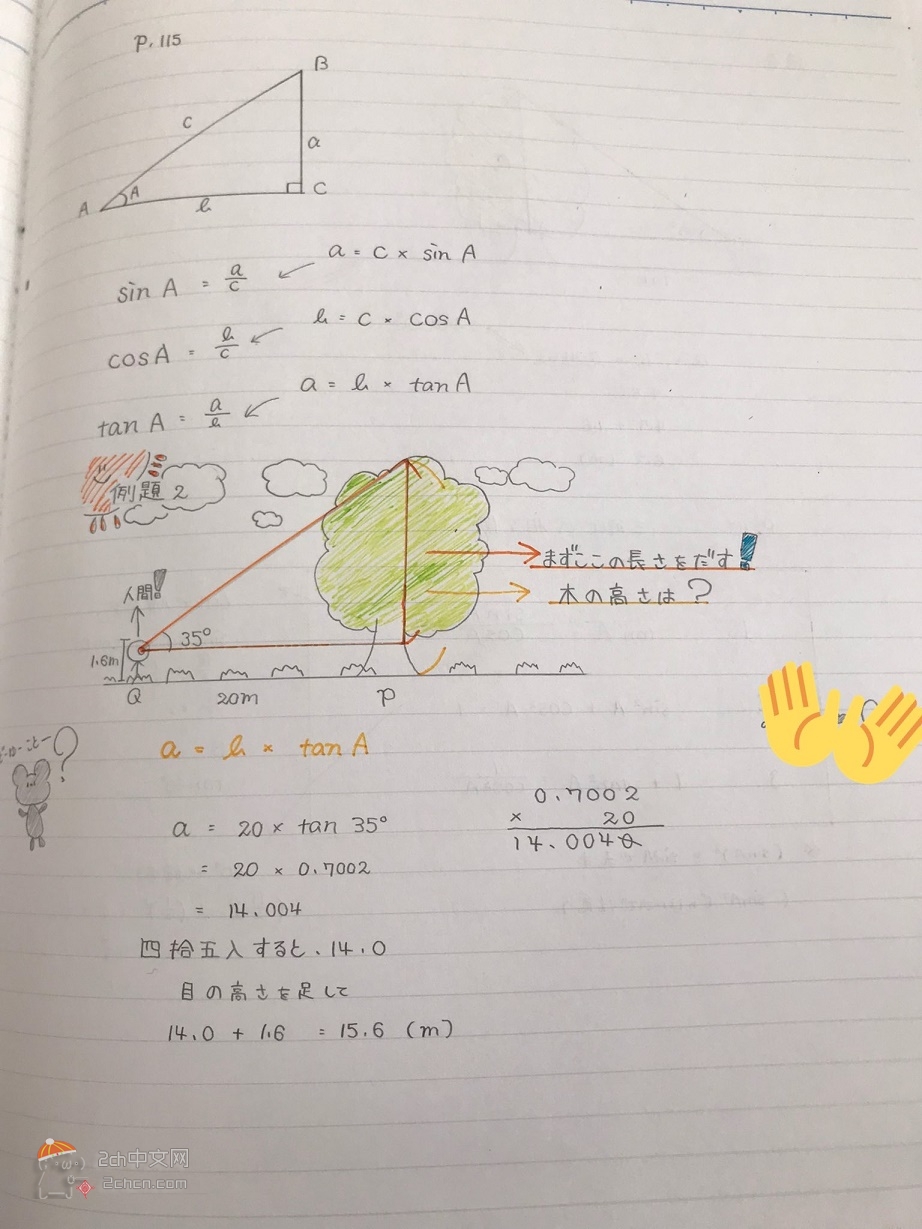 P. 115
B
c
a
A A
b
C
a = c × sin A
sin A = a/c
b = c × cos A
cos A = b/c
a = b × tan A
tan A = a/b
例題 2
まずここの長さをだす!
木の高さは?
人間!
35°
1.6m
Q 20m P
?
a = b × tan A
0.7002
× 20
14.0040
a = 20 × tan 35°
= 20 × 0.7002
= 14.004
四捨五入すると、14.0
目の高さを足して
14.0 + 1.6 = 15.6 (m)
2ch中文网
2chcn.com